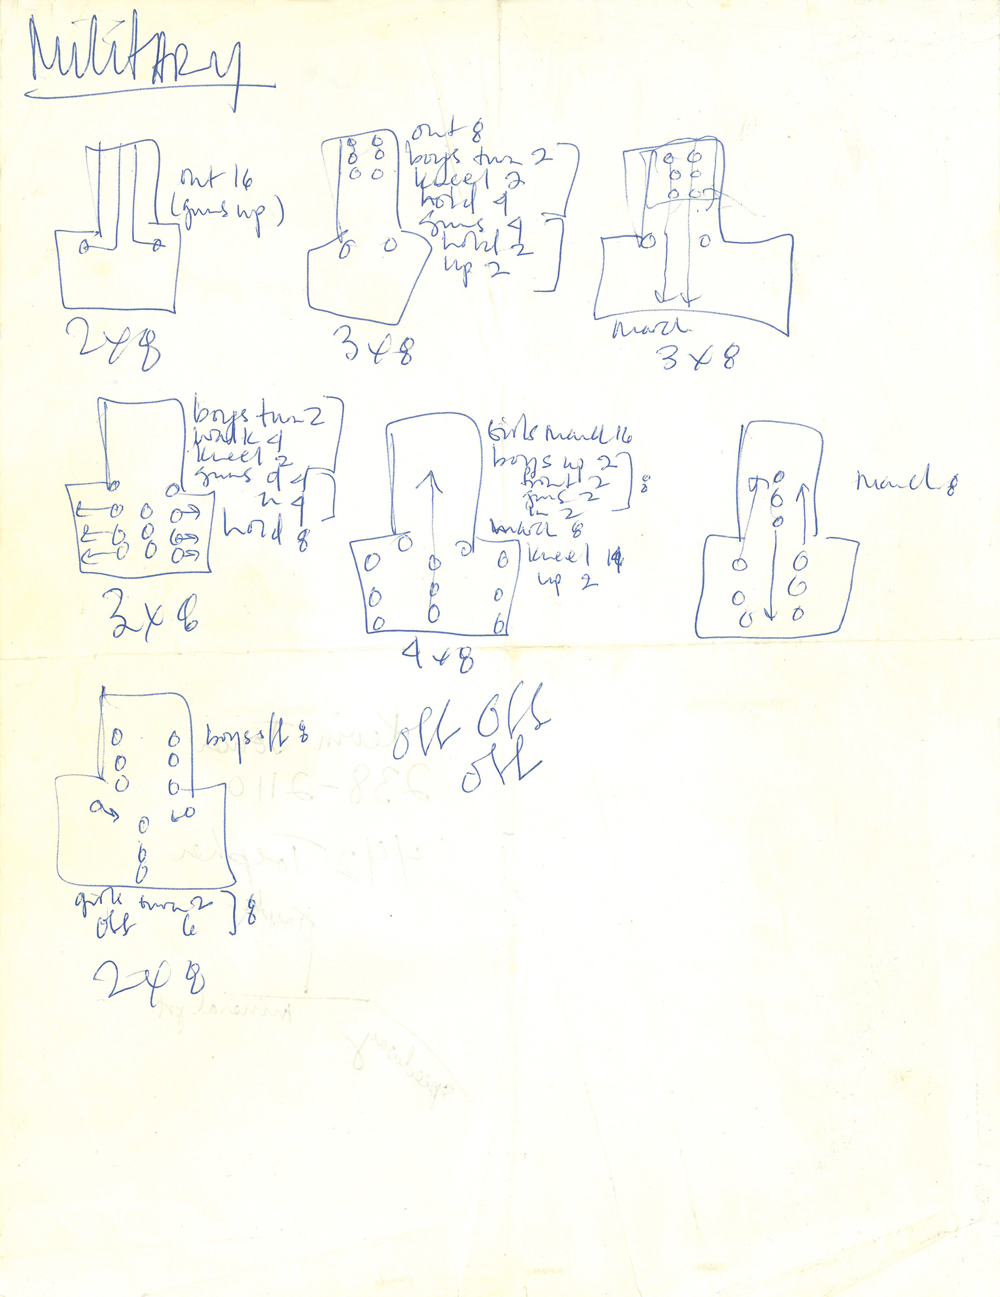 MilitARy
out 16
(guns up)
2x8
out 8
boys turn 2
kneel 2
hold 4
guns 4
hold 2
up 2
3x8
march
3x8
boys turn 2
walk 4
kneel 2
guns d 4
in 4
hold 8
3x8
Girls march 16
boys up 2
front 2
guns 2
in 2
8
march 8
kneel
up 2
4x8
march 8
boys off 8
off off
off
girls turn 2
off 6
8
2x8
238-2110